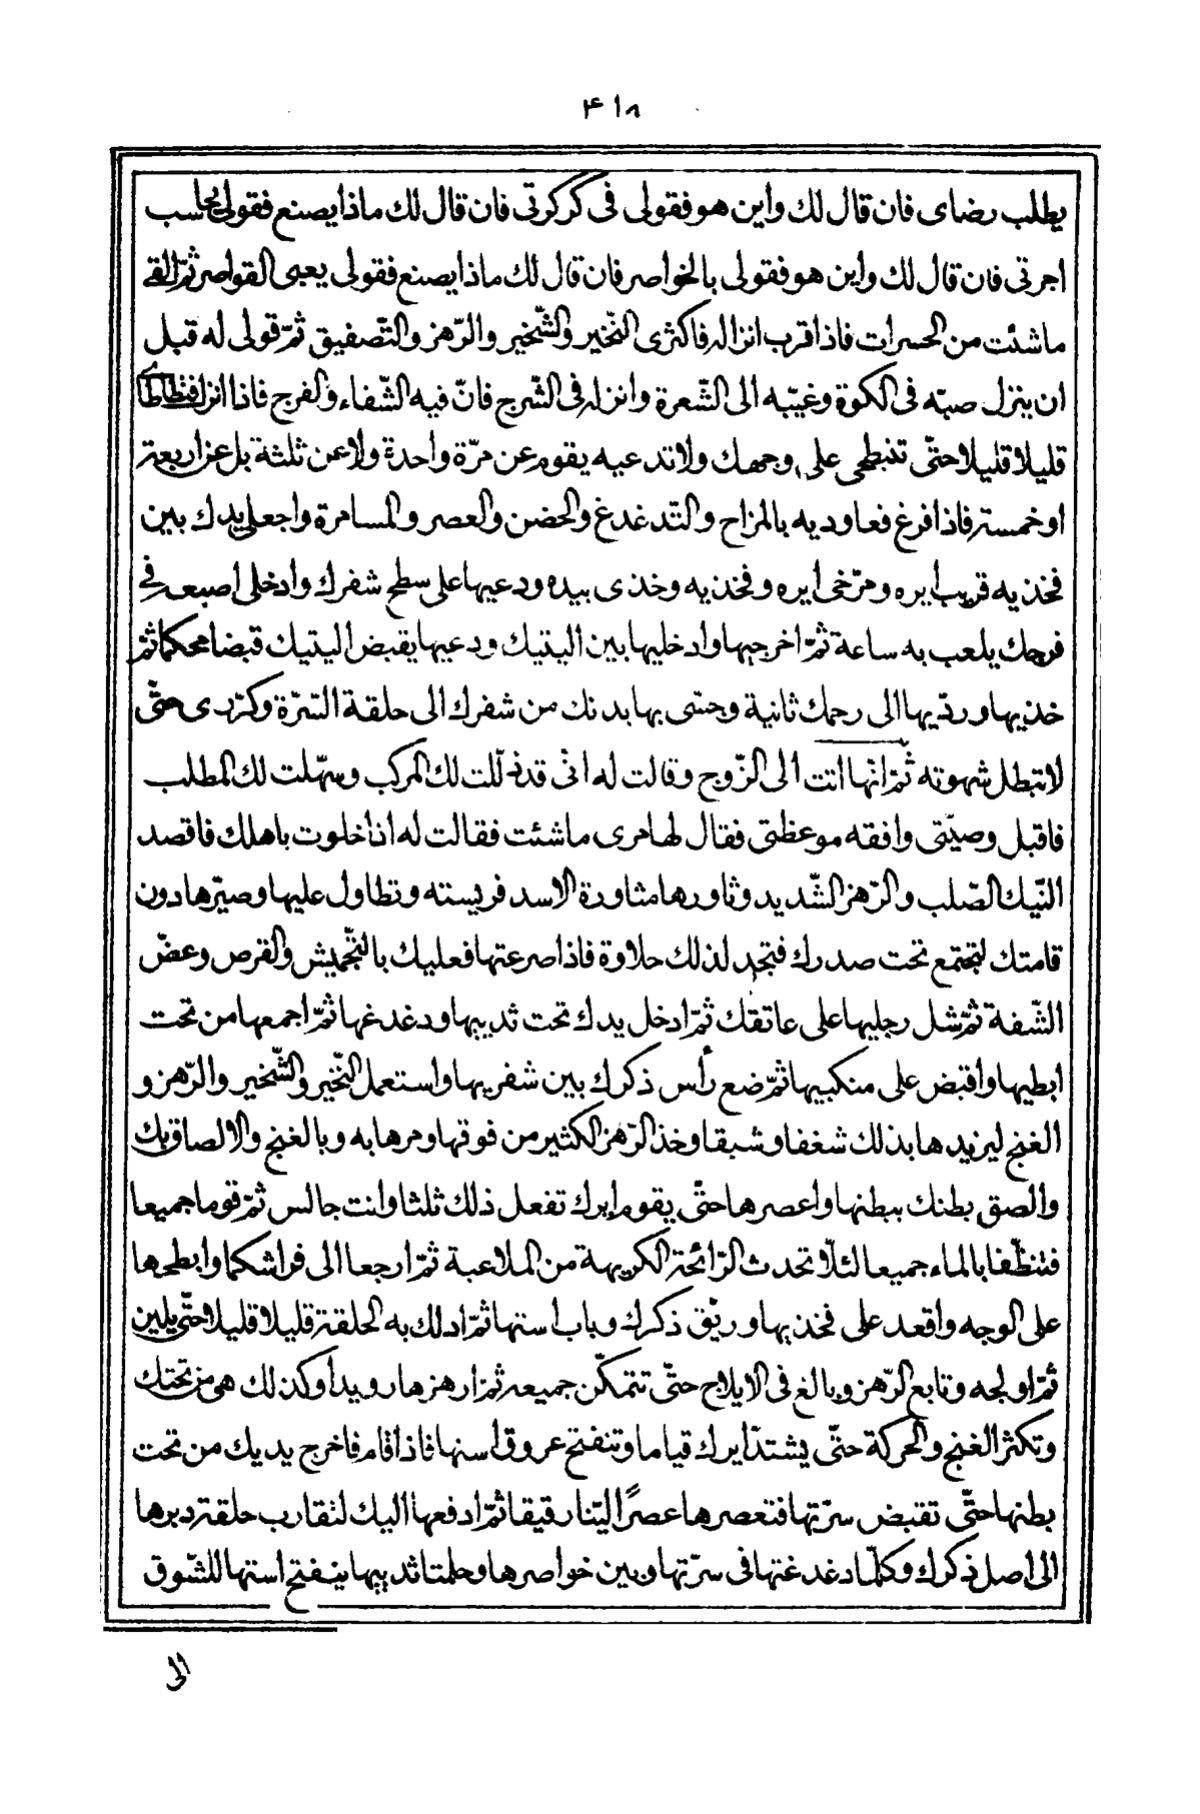 ٤١٨
يطلب رضاى فان قال لك واين هو فقولى فى كركرتى فان قال لك ماذا يصنع فقولى يحاسب
اجرتى فان قال لك واين هو فقولى بالخواصر فان قال لك ماذا يصنع فقولى يعبى القواصر ثمّ القى
ماشئت من الحسرات فاذا قرب انزاله فاكثرى النّخير والشّخير والرّهز والتّصفيق ثمّ قولى له قبل
ان ينزل صبّه فى الكوة وغيّبه الى الشّعرة وانزله فى الشرج فانّ فيه الشّفاء والفرج فاذا انزل فتطاطاى
قليلا قليلا حتّى تنبطحى على وجهك ولا تدعيه يقوم عن مرّة واحدة ولا عن ثلثة بل عن اربعة
او خمسة فاذا فرغ فعاوديه بالمزاح والتّدغدغ والحضن والعصر والمسامرة واجعلى يدك بين
فخذيه قريب ايره ومرّخى ايره وفخذيه وخذى بيده ودعيها على سطح شفرك وادخلى اصبعه فى
فرجك يلعب به ساعة ثمّ اخرجيها وادخليها بين اليتيك ودعيها يقبض اليتيك قبضا محكما ثمّ
خذيها وردّيها الى رحمك ثانية وجسّى بها بدنك من شفرك الى حلقة السّرّة وكرّرى حتّى
لا تبطل شهوته ثمّ انّها اتت الى الزّوج وقالت له انّى قد ذلّلت لك المركب وسهّلت لك المطلب
فاقبل وصيّتى وافقه موعظتى فقال لها مرى ماشئت فقالت له اذا خلوت باهلك فاقصد
النّيك الصّلب والرّهز الشّديد وثاورها مثاورة الاسد فريسته وتطاول عليها وصيّرها دون
قامتك لتجتمع تحت صدرك فتجد لذلك حلاوة فاذا صرعتها فعليك بالتّجميش والقرص وعضّ
الشّفة ثمّ شل رجليها على عاتقك ثمّ ادخل يدك تحت ثدييها ودغدغها ثمّ اجمعها من تحت
ابطيها واقبض على منكبيها ثمّ ضع رأس ذكرك بين شفريها واستعمل النّخير والشّخير والرّهز و
الغنج ليزيدها بذلك شغفا وشبقا وخذ الرّهز الكثير من فوقها ومرها به وبالغنج والالصاق بك
والصق بطنك ببطنها واعصرها حتّى يقوم ايرك تفعل ذلك ثلثا وانت جالس ثمّ قوما جميعا
فتنظّفا بالماء جميعا لئلّا تحدث الرّائحة الكريهة من الملاعبة ثمّ ارجعا الى فراشكما وابطحها
على الوجه واقعد على فخذيها وريّق ذكرك وباب استها ثمّ ادلك به الحلقة قليلا قليلا حتّى يلين
ثمّ اولجه وتابع الرّهز وبالغ فى الايلاج حتّى تتمكّن جميعه ثمّ ارهزها رويدا وكذلك هى من تحتك
وتكثر الغنج والحركة حتّى يشتدّ ايرك قياما وتنفتح عروق استها فاذا قام فاخرج يديك من تحت
بطنها حتّى تقبض سرّتها فتعصرها عصرًا ليّنا رقيقا ثمّ ادفعها اليك لتقارب حلقة دبرها
الى اصل ذكرك وكلّما دغدغتها فى سرّتها وبين خواصرها وحلمتا ثدييها ينفتح استها للشّوق
الى